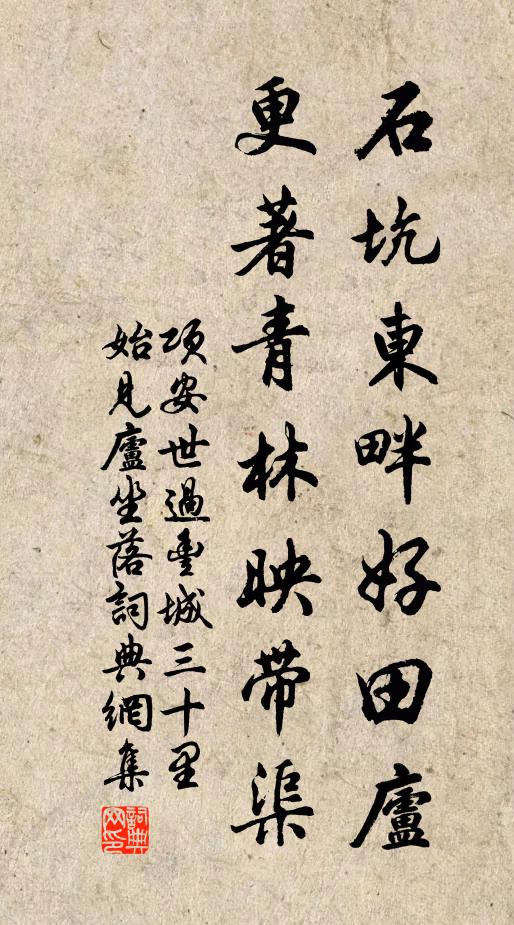 石坑東畔好田廬
更著青林映帶渠
項安世過豐城三十里
始見廬坐落詞典網集
詞典網印